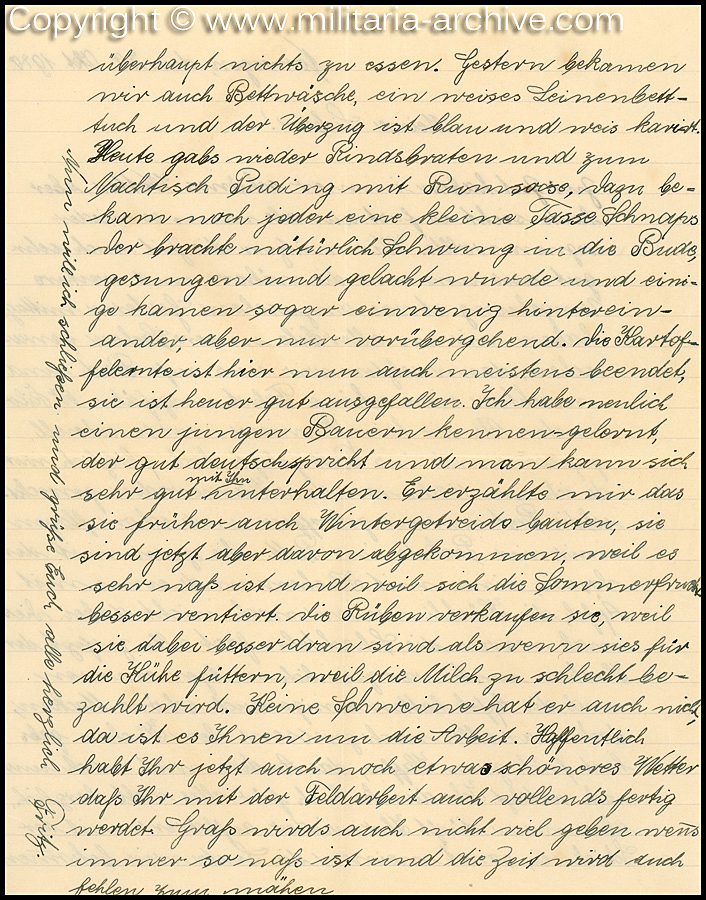 Copyright © www.militaria-archive.com
überhaupt nichts zu essen. Gestern bekamen
wir auch Bettwäsche, ein weises Leinenbett-
tuch und der Überzug ist blau und weis kariert.
Heute gabs wieder Rindsbraten und zum
Nachtisch Puding mit Rumsoose, dazu be-
kam noch jeder eine kleine Tasse Schnaps
der brachte nätürlich Schwung in die Bude,
gesungen und gelacht wurde und eini-
ge kamen sogar einwenig hinterein-
ander, aber nur vorübergehend. Die Kartof-
felernte ist hier nun auch meistens beendet,
sie ist heuer gut ausgefallen. Ich habe neulich
einen jungen Bauern kennen-gelernt,
der gut deutsch spricht und man kann sich
sehr gut mit Ihn unterhalten. Er erzählte mir das
sie früher auch Wintergetreide bauten, sie
sind jetzt aber davon abgekommen, weil es
sehr naß ist und weil sich die Sommerfrucht
besser rentiert. Die Rüben verkaufen sie, weil
sie dabei besser dran sind als wenn sies für
die Kühe füttern, weil die Milch zu schlecht be-
zahlt wird. Keine Schweine hat er auch nicht,
da ist es Ihnen um die Arbeit. Hoffentlich
habt Ihr jetzt auch noch etwas schöneres Wetter
daß Ihr mit der Feldarbeit auch vollends fertig
werdet. Graß wirds auch nicht viel geben wenns
immer so naß ist und die Zeit wird auch
fehlen zum mähen
Nun will ich schließen und grüße Euch alle herzlich Fritz.